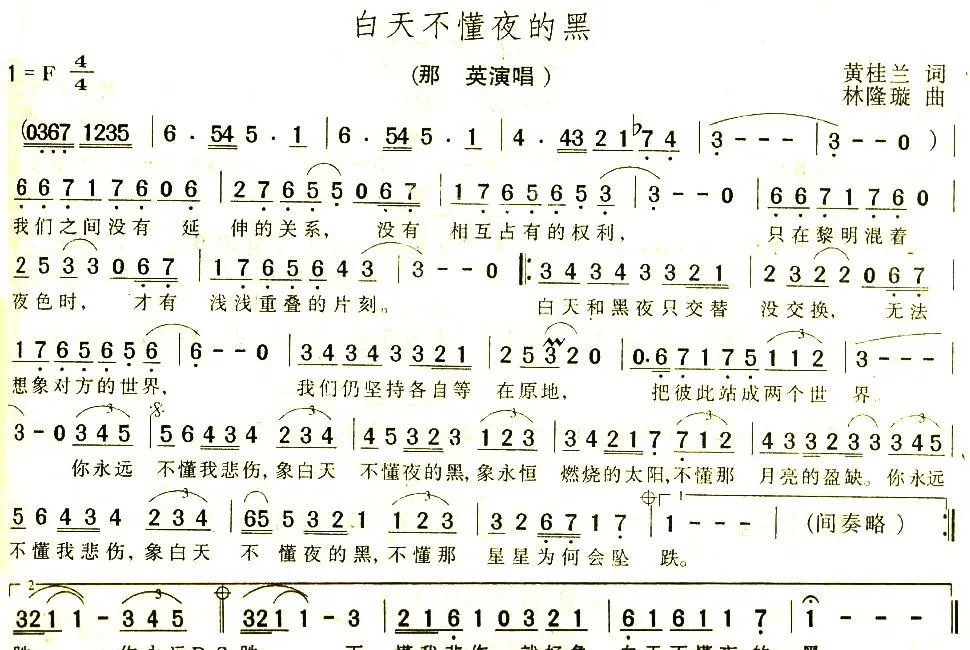 白天不懂夜的黑
1=F 4/4
(那 英演唱)
黄桂兰 词
林隆璇 曲
(0367 1235 | 6·54 5·1 | 6·54 5·1 | 4·43 21 ♭74 | 3--- | 3--0 ) |
6 6 7 1 7 6 0 6 | 2 7 6 5 5 0 6 7 | 1 7 6 5 6 5 3 | 3--0 | 6 6 7 1 7 6 0
我们之间没有 延 伸的关系, 没有 相互占有的权利, 只在黎明混着
2 5 3 3 0 6 7 | 1 7 6 5 6 4 3 | 3--0 |: 3 4 3 4 3 3 2 1 | 2 3 2 2 0 6 7 |
夜色时, 才有 浅浅重叠的片刻。 白天和黑夜只交替 没交换, 无法
1 7 6 5 6 5 6 | 6--0 | 3 4 3 4 3 3 2 1 | 2 5 3 2 0 | 0·6 7 1 7 5 1 1 2 | 3---
想象对方的世界, 我们仍坚持各自等 在原地, 把彼此站成两个世 界。
3-0 3 4 5 | 5 6 4 3 4 2 3 4 | 4 5 3 2 3 1 2 3 | 3 4 2 1 7 7 1 2 | 4 3 3 2 3 3 3 4 5
你永远 不懂我悲伤,象白天 不懂夜的黑,象永恒 燃烧的太阳,不懂那 月亮的盈缺。你永远
5 6 4 3 4 2 3 4 | 65 5 3 2 1 1 2 3 | 3 2 6 7 1 7 | 1 - - - | (间奏略) :||
不懂我悲伤,象白天 不 懂夜的黑,不懂那 星星为何会坠 跌。
3211-345 | 3211-3 | 21610323 | 216117 | 1-- ||